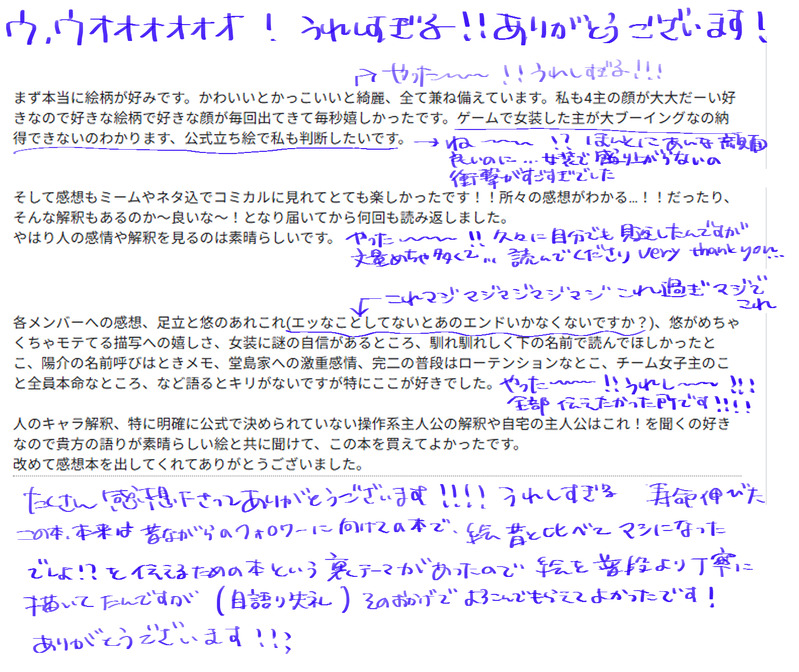 ウ,ウオオオオオオ！うれしすぎる!!ありがとうございます!
やった〜〜!!うれしすぎる!!!
まず本当に絵柄が好みです。かわいいとかっこいいと綺麗、全て兼ね備えています。私も4主の顔が大大だーい好
きなので好きな絵柄で好きな顔が毎回出てきて毎秒嬉しかったです。ゲームで女装した主が大ブーイングなの納
得できないのわかります、公式立ち絵で私も判断したいです。
→ね〜〜!?ほんとにあんな顔面
良いのに...女装で盛り上がらないの
衝撃がすごすぎでした
そして感想もミームやネタ込でコミカルに見れてとても楽しかったです！！所々の感想がわかる...！！だったり、
そんな解釈もあるのか〜良いな〜！となり届いてから何回も読み返しました。
やはり人の感情や解釈を見るのは素晴らしいです。
やった〜〜!!久々に自分でも見返したんですが
文量めちゃ多くて...読んでくださりvery thank you...
これマジマジマジマジマジこれ過ぎマジで
これ
各メンバーへの感想、足立と悠のあれこれ(エッなことしてないとあのエンドいかなくないですか？)、悠がめちゃ
くちゃモテてる描写への嬉しさ、女装に謎の自信があるところ、馴れ馴れしく下の名前で読んでほしかったと
こ、陽介の名前呼びはときメモ、堂島家への激重感情、完二の普段はローテンションなとこ、チーム女子主のこ
と全員本命なところ、など語るとキリがないですが特にここが好きでした。
やった〜〜!!うれし〜〜!!!
全部伝えたかった所です!!!!
人のキャラ解釈、特に明確に公式で決められていない操作系主人公の解釈や自宅の主人公はこれ！を聞くの好き
なので貴方の語りが素晴らしい絵と共に聞けて、この本を買えてよかったです。
改めて感想本を出してくれてありがとうございました。
たくさん感想下さってありがとうございます!!!!うれしすぎる 寿命伸びた
この本、本来は昔ながらのフォロワーに向けての本で、絵昔と比べてマシになった
でしょ!?を伝えるための本という裏テーマがあったので絵を普段より丁寧に
描いてたんですが(自語り失礼)そのおかげでよろこんでもらえてよかったです!
ありがとうございます!!;